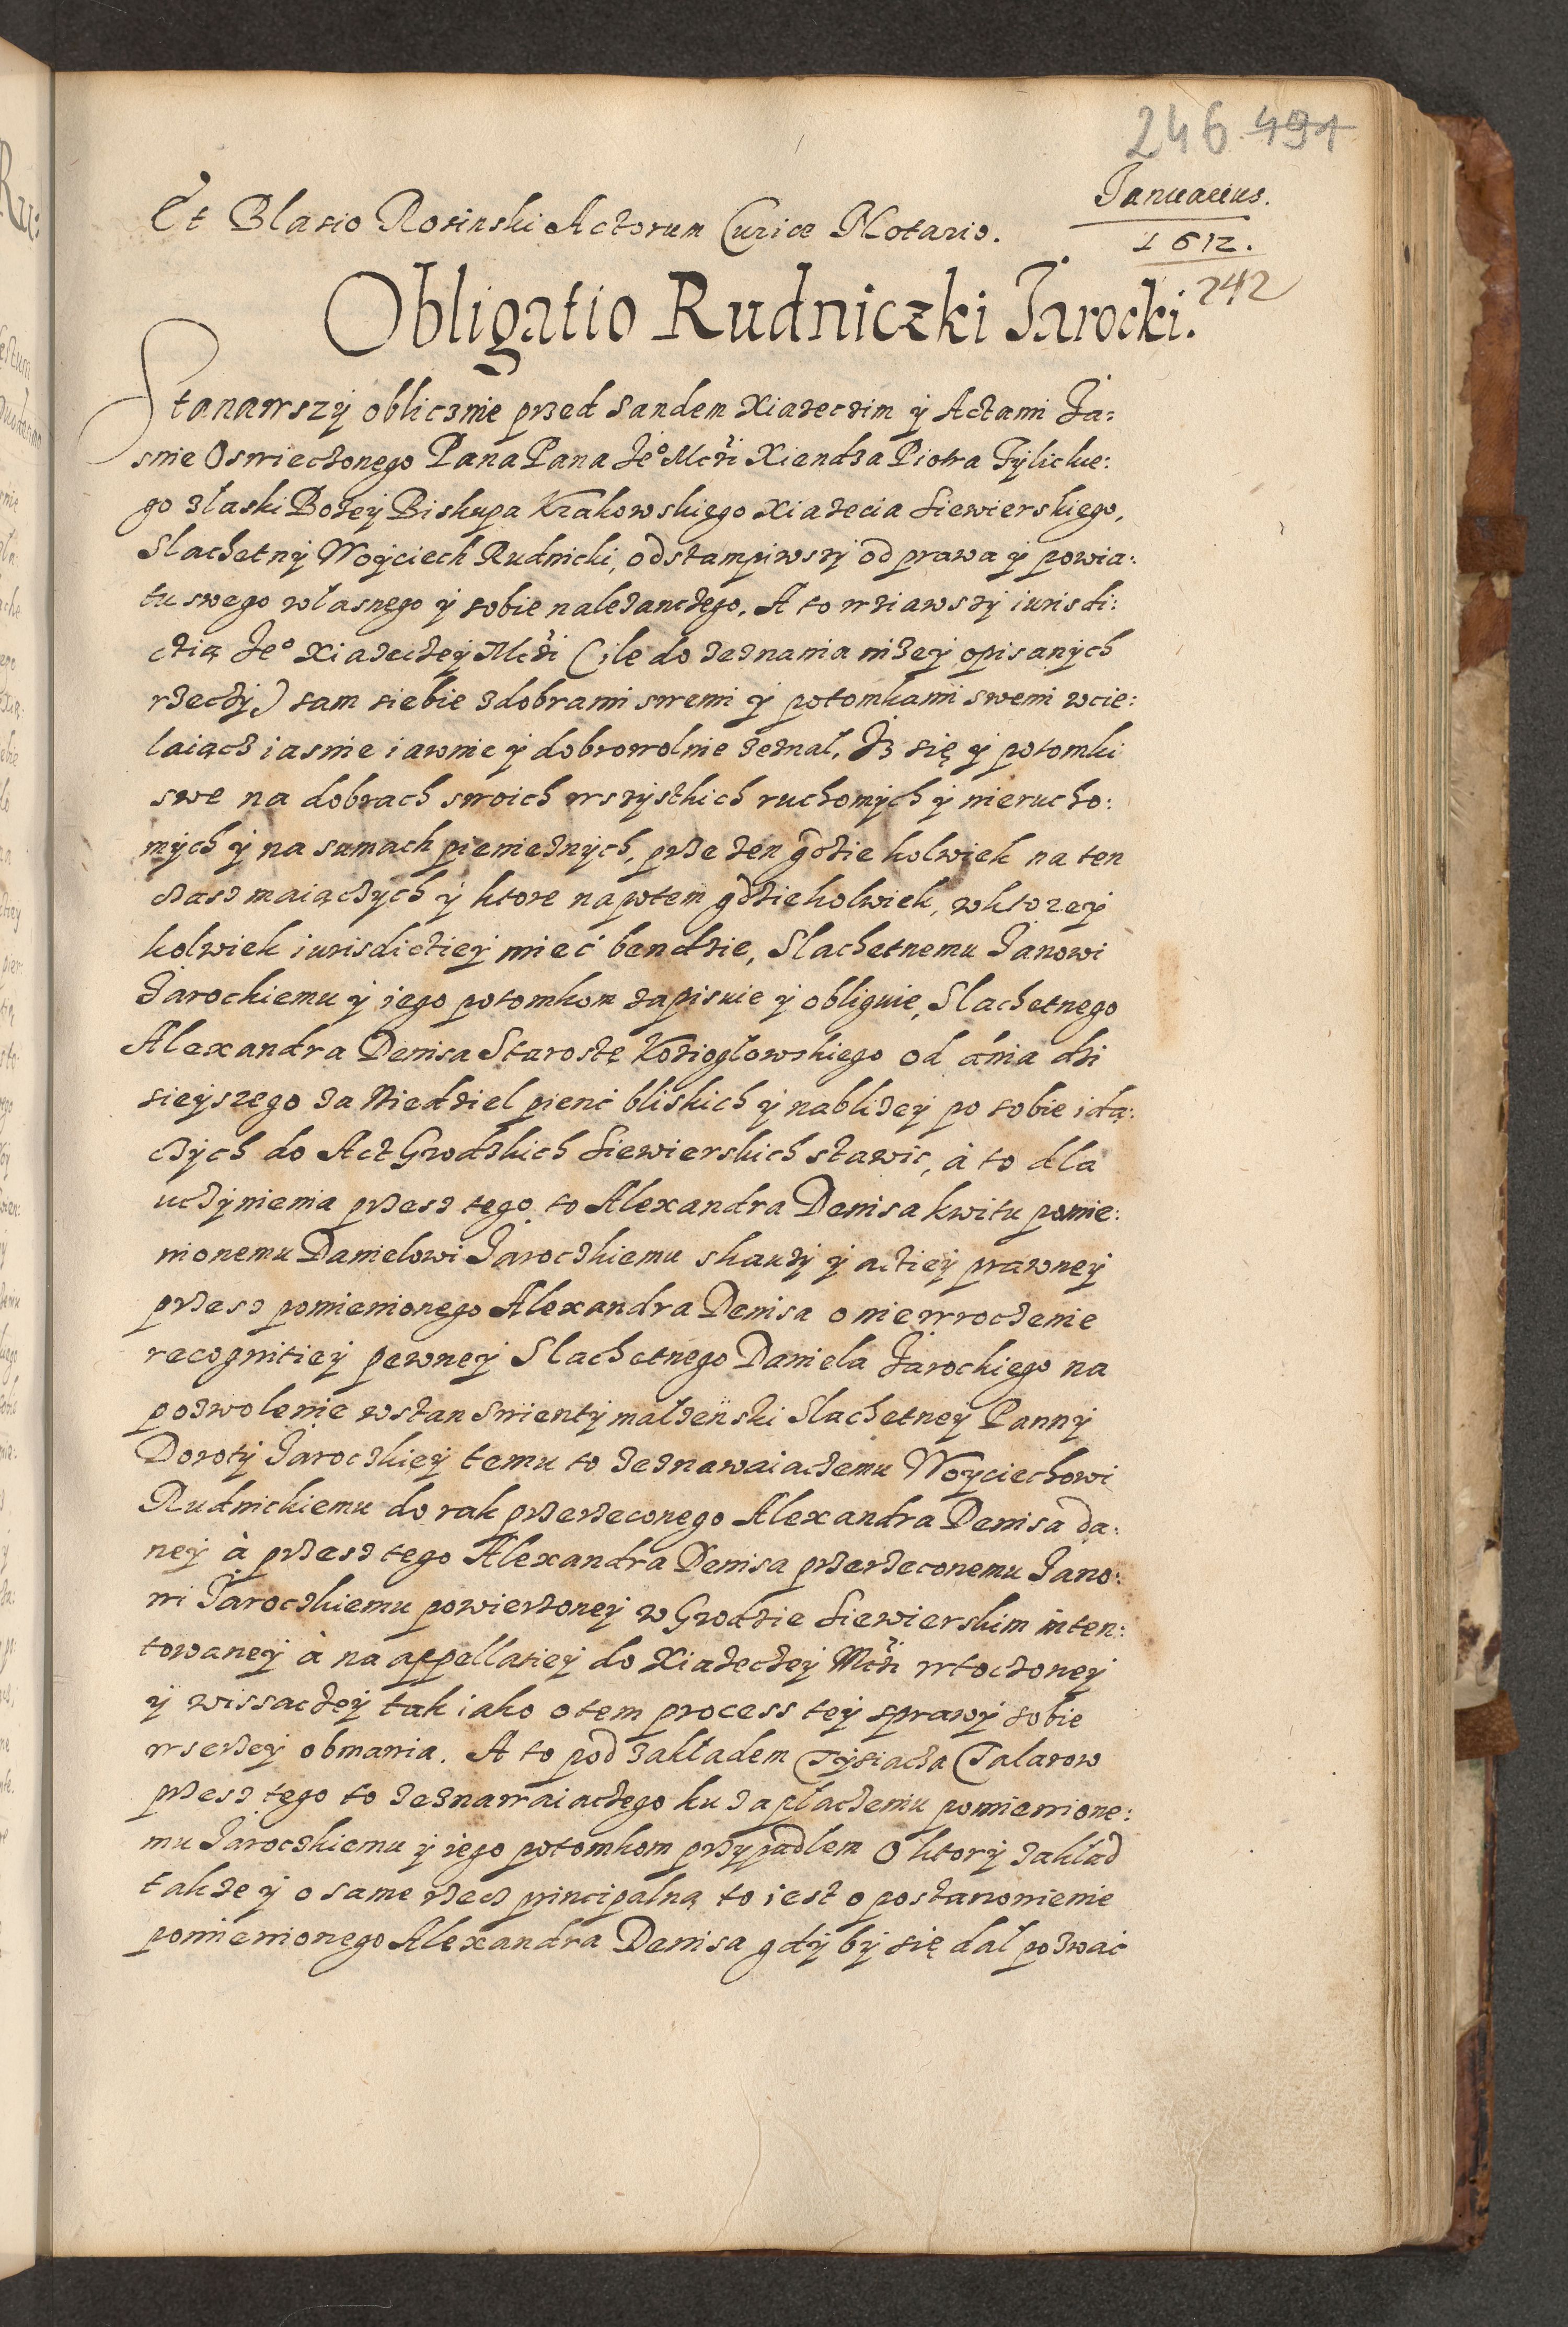 246. 491
Januarius.
1612.
242
Et Blasio Rosinski Actorum Curiae Notario.
Obligatio Rudniczki Jarocki.
Stanawszÿ oblicznie przed Sandem Xiazeczim ÿ Actami Ja:
snie Oswieczonego Pana Pana Jeº Mczi Xiendza Piotra Tÿlickie:
go z łaski Bozeÿ Biskupa Krakowskiego Xiazecia Siewierskiego,
Slachetnÿ Woÿciech Rudnicki, odstampiwszÿ od prawa ÿ powia:
tu swego własnego ÿ sobie nalezanczego, A to wziawszÿ iurisdi:
ctią Jeº Xiazeczeÿ Mczi (ile do zeznania nizeÿ opisanÿch
rzeczÿ) sam siebie z dobrami swemi ÿ potomkami swemi wcie:
laiącz iasnie iawnie ÿ dobrowolnie zeznał, Jz się ÿ potomki
swe na dobrach swoich wszÿstkich ruchomÿch ÿ nierucho:
mÿch ÿ na sumach pienieznÿch, prze zen gdzie kolwiek na ten
czasz maiączÿch ÿ ktore napotem gdziekolwiek, w ktoreÿ
kolwiek iurisdictieÿ mieć bendzie, Slachetnemu Janowi
Jarockiemu ÿ iego potomkom zapisuie ÿ obliguie, Slachetnego
Alexandra Denisa Starostę Kozioglowskiego od dnia dzi
sieÿszego za Niedziel pienć bliskich ÿ nablizeÿ po sobie idą:
czÿch do Act Grodzkich Siewierskich stawic, à to dla
uczÿnienia przesz tego to Alexandra Denisa kwitu pomie:
nionemu Danielowi Jaroczkiemu skarżÿ ÿ actieÿ prawneÿ
przesz pomienionego Alexandra Denisa o niewroczenie
recognitieÿ pewneÿ Slachetnego Daniela Jarockiego na
pozwolenie w stan Swientÿ malzenski Slachetneÿ Pannÿ
Dorotÿ Jaroczkieÿ temu to zeznawaiaczemu Woÿciechowi
Rudnickiemu do rak przerzeconego Alexandra Denisa da:
neÿ à przesz tego Alexandra Denisa przerzeconemu Jano:
wi Jaroczkiemu powierzoneÿ w Grodzie Siewierskim inten:
towaneÿ à na appellatieÿ do Xiazeczeÿ Mczi wtoczoneÿ
ÿ wissaczeÿ tak iako o tem process teÿ sprawÿ sobie
wserzeÿ obmawia. A to pod zakładem Tÿsiacza Talarow
przesz tego to zeznawaiaczego ku zapłaczeniu pomienione:
mu Jaroczkiemu ÿ iego potomkom przÿpadlem O ktorÿ zakład
takze ÿ o same rzecz principalną to iest o postanowienie
pomienionego Alexandra Denisa gdÿ bÿ się dał pozwać